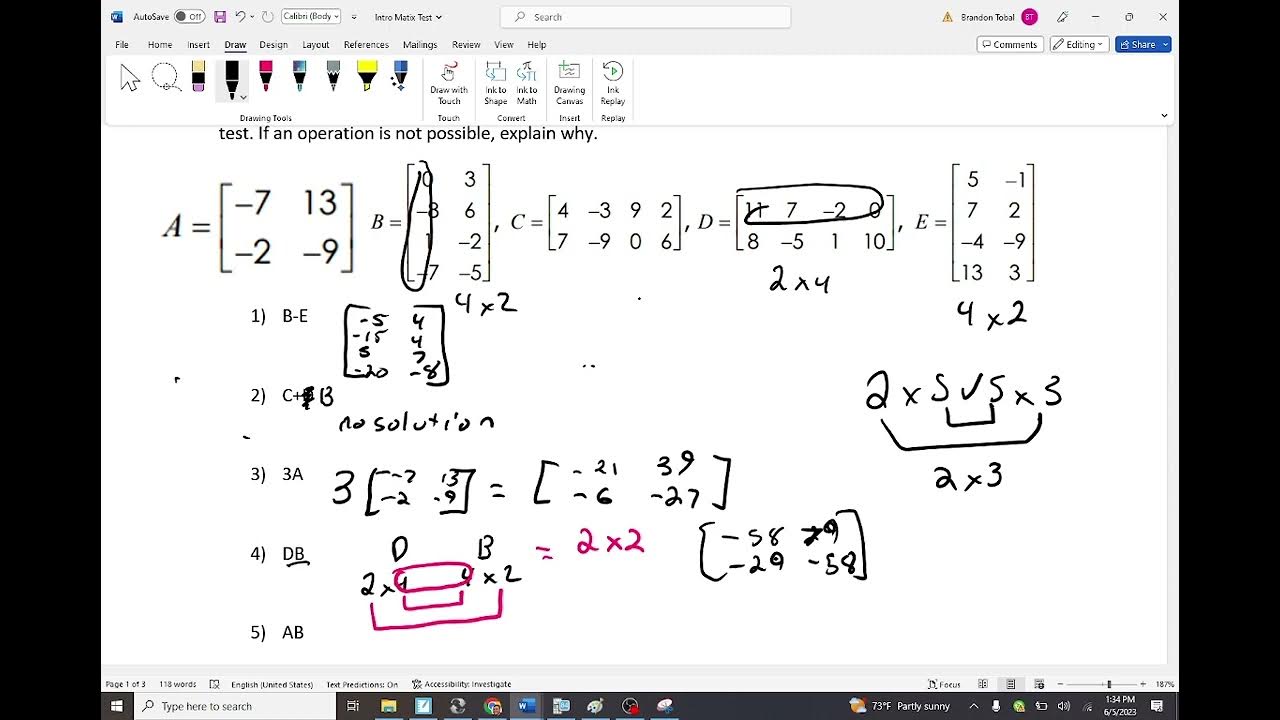 AutoSave Off Calibri (Body Intro Matix Test Search Brandon Tobal BT
File Home Insert Draw Design Layout References Mailings Review View Help Comments Editing Share
Draw with Touch Ink to Shape Ink to Math Drawing Canvas Ink Replay
Drawing Tools Touch Convert Insert Replay
test. If an operation is not possible, explain why.
A = [ -7 13
-2 -9 ]
B = [ 0 3
-8 6
1 -2
-7 -5 ],
4 x 2
C = [ 4 -3 9 2
7 -9 0 6 ],
D = [ 11 7 -2 0
8 -5 1 10 ],
2 x 4
E = [ 5 -1
7 2
-4 -9
13 3 ]
4 x 2
1) B-E
[ -5 4
-15 4
5 7
-20 -8 ]
2) C+ B
no solution
2 x 5 5 x 3
2 x 3
3) 3A 3 [ -7 13
-2 -9 ] = [ -21 39
-6 -27 ]
4) DB D B
2 x 4 4 x 2 = 2 x 2
[ -58 29
-29 -58 ]
5) AB
Page 1 of 3 118 words English (United States) Text Predictions: On Accessibility: Investigate Focus 187%
Type here to search 73°F Partly sunny 1:34 PM
6/5/2023